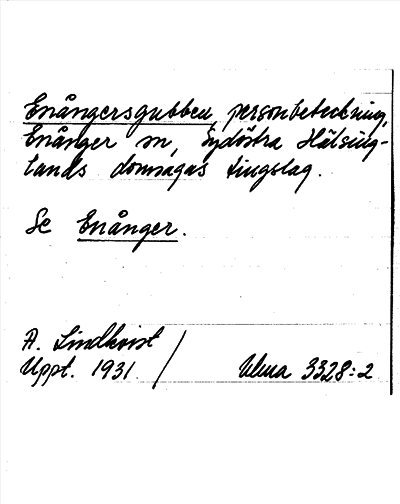 Enångersgubben, personbeteckning,
Enånger sn, Sydöstra Hälsing-
lands domsagas tingslag.
Se Enånger.
A. Lindkvist
Uppt. 1931.
Ulma 3328:2